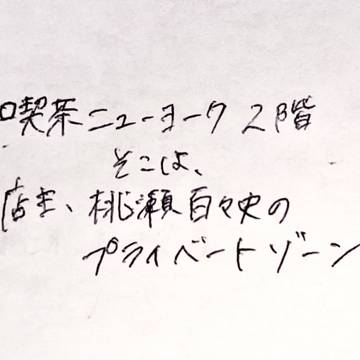 喫茶ニューヨーク 2階
そこは、
店主、桃瀬百々史の
プライベートゾーン